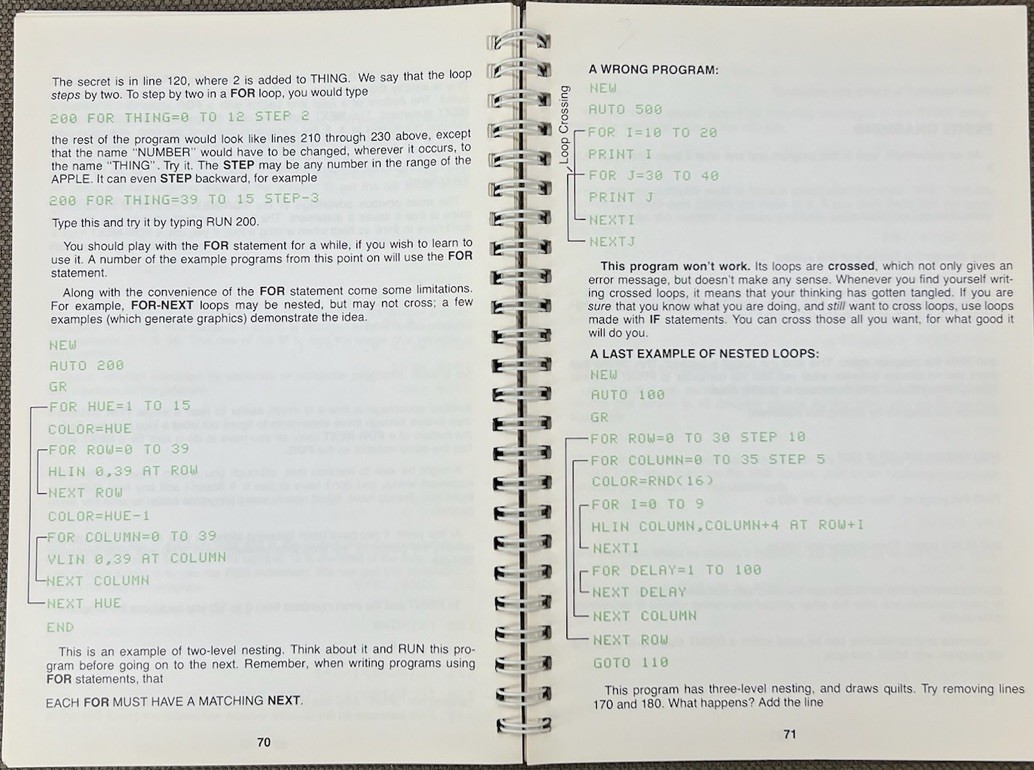 The secret is in line 120, where 2 is added to THING. We say that the loop
steps by two. To step by two in a FOR loop, you would type
200 FOR THING=0 TO 12 STEP 2
the rest of the program would look like lines 210 through 230 above, except
that the name "NUMBER" would have to be changed, wherever it occurs, to
the name "THING". Try it. The STEP may be any number in the range of the
APPLE. It can even STEP backward, for example
200 FOR THING=39 TO 15 STEP-3
Type this and try it by typing RUN 200.
You should play with the FOR statement for a while, if you wish to learn to
use it. A number of the example programs from this point on will use the FOR
statement.
Along with the convenience of the FOR statement come some limitations.
For example, FOR-NEXT loops may be nested, but may not cross; a few
examples (which generate graphics) demonstrate the idea.
NEW
AUTO 200
GR
FOR HUE=1 TO 15
COLOR=HUE
FOR ROW=0 TO 39
HLIN 0,39 AT ROW
NEXT ROW
COLOR=HUE-1
FOR COLUMN=0 TO 39
VLIN 0,39 AT COLUMN
NEXT COLUMN
NEXT HUE
END
This is an example of two-level nesting. Think about it and RUN this pro-
gram before going on to the next. Remember, when writing programs using
FOR statements, that
EACH FOR MUST HAVE A MATCHING NEXT.
70
A WRONG PROGRAM:
NEW
AUTO 500
Loop Crossing
FOR I=10 TO 20
PRINT I
FOR J=30 TO 40
PRINT J
NEXTI
NEXTJ
This program won't work. Its loops are crossed, which not only gives an
error message, but doesn't make any sense. Whenever you find yourself writ-
ing crossed loops, it means that your thinking has gotten tangled. If you are
sure that you know what you are doing, and still want to cross loops, use loops
made with IF statements. You can cross those all you want, for what good it
will do you.
A LAST EXAMPLE OF NESTED LOOPS:
NEW
AUTO 100
GR
FOR ROW=0 TO 30 STEP 10
FOR COLUMN=0 TO 35 STEP 5
COLOR=RND(16)
FOR I=0 TO 9
HLIN COLUMN,COLUMN+4 AT ROW+I
NEXTI
FOR DELAY=1 TO 100
NEXT DELAY
NEXT COLUMN
NEXT ROW
GOTO 110
This program has three-level nesting, and draws quilts. Try removing lines
170 and 180. What happens? Add the line
71